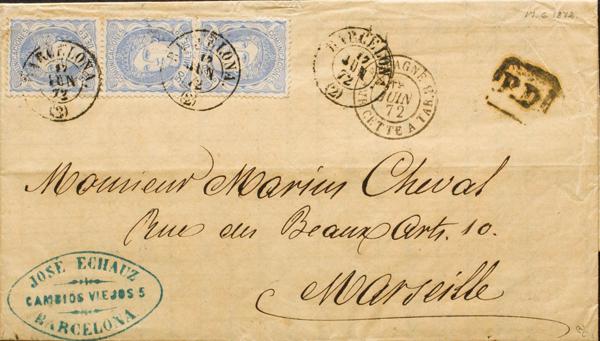 M. 6 1872.
BARCELONA.
12
JUN
72
(2)
BARCELONA.
12
JUN
72
(2)
BARCELONA.
12
JUN
72
(2)
JUIN
72
CETTE A TAR
P.D
Monsieur Marius Cheval
Rue des Beaux Arts. 10.
Marseille
JOSÉ ECHAUZ
CAMBIOS VIEJOS 5
BARCELONA